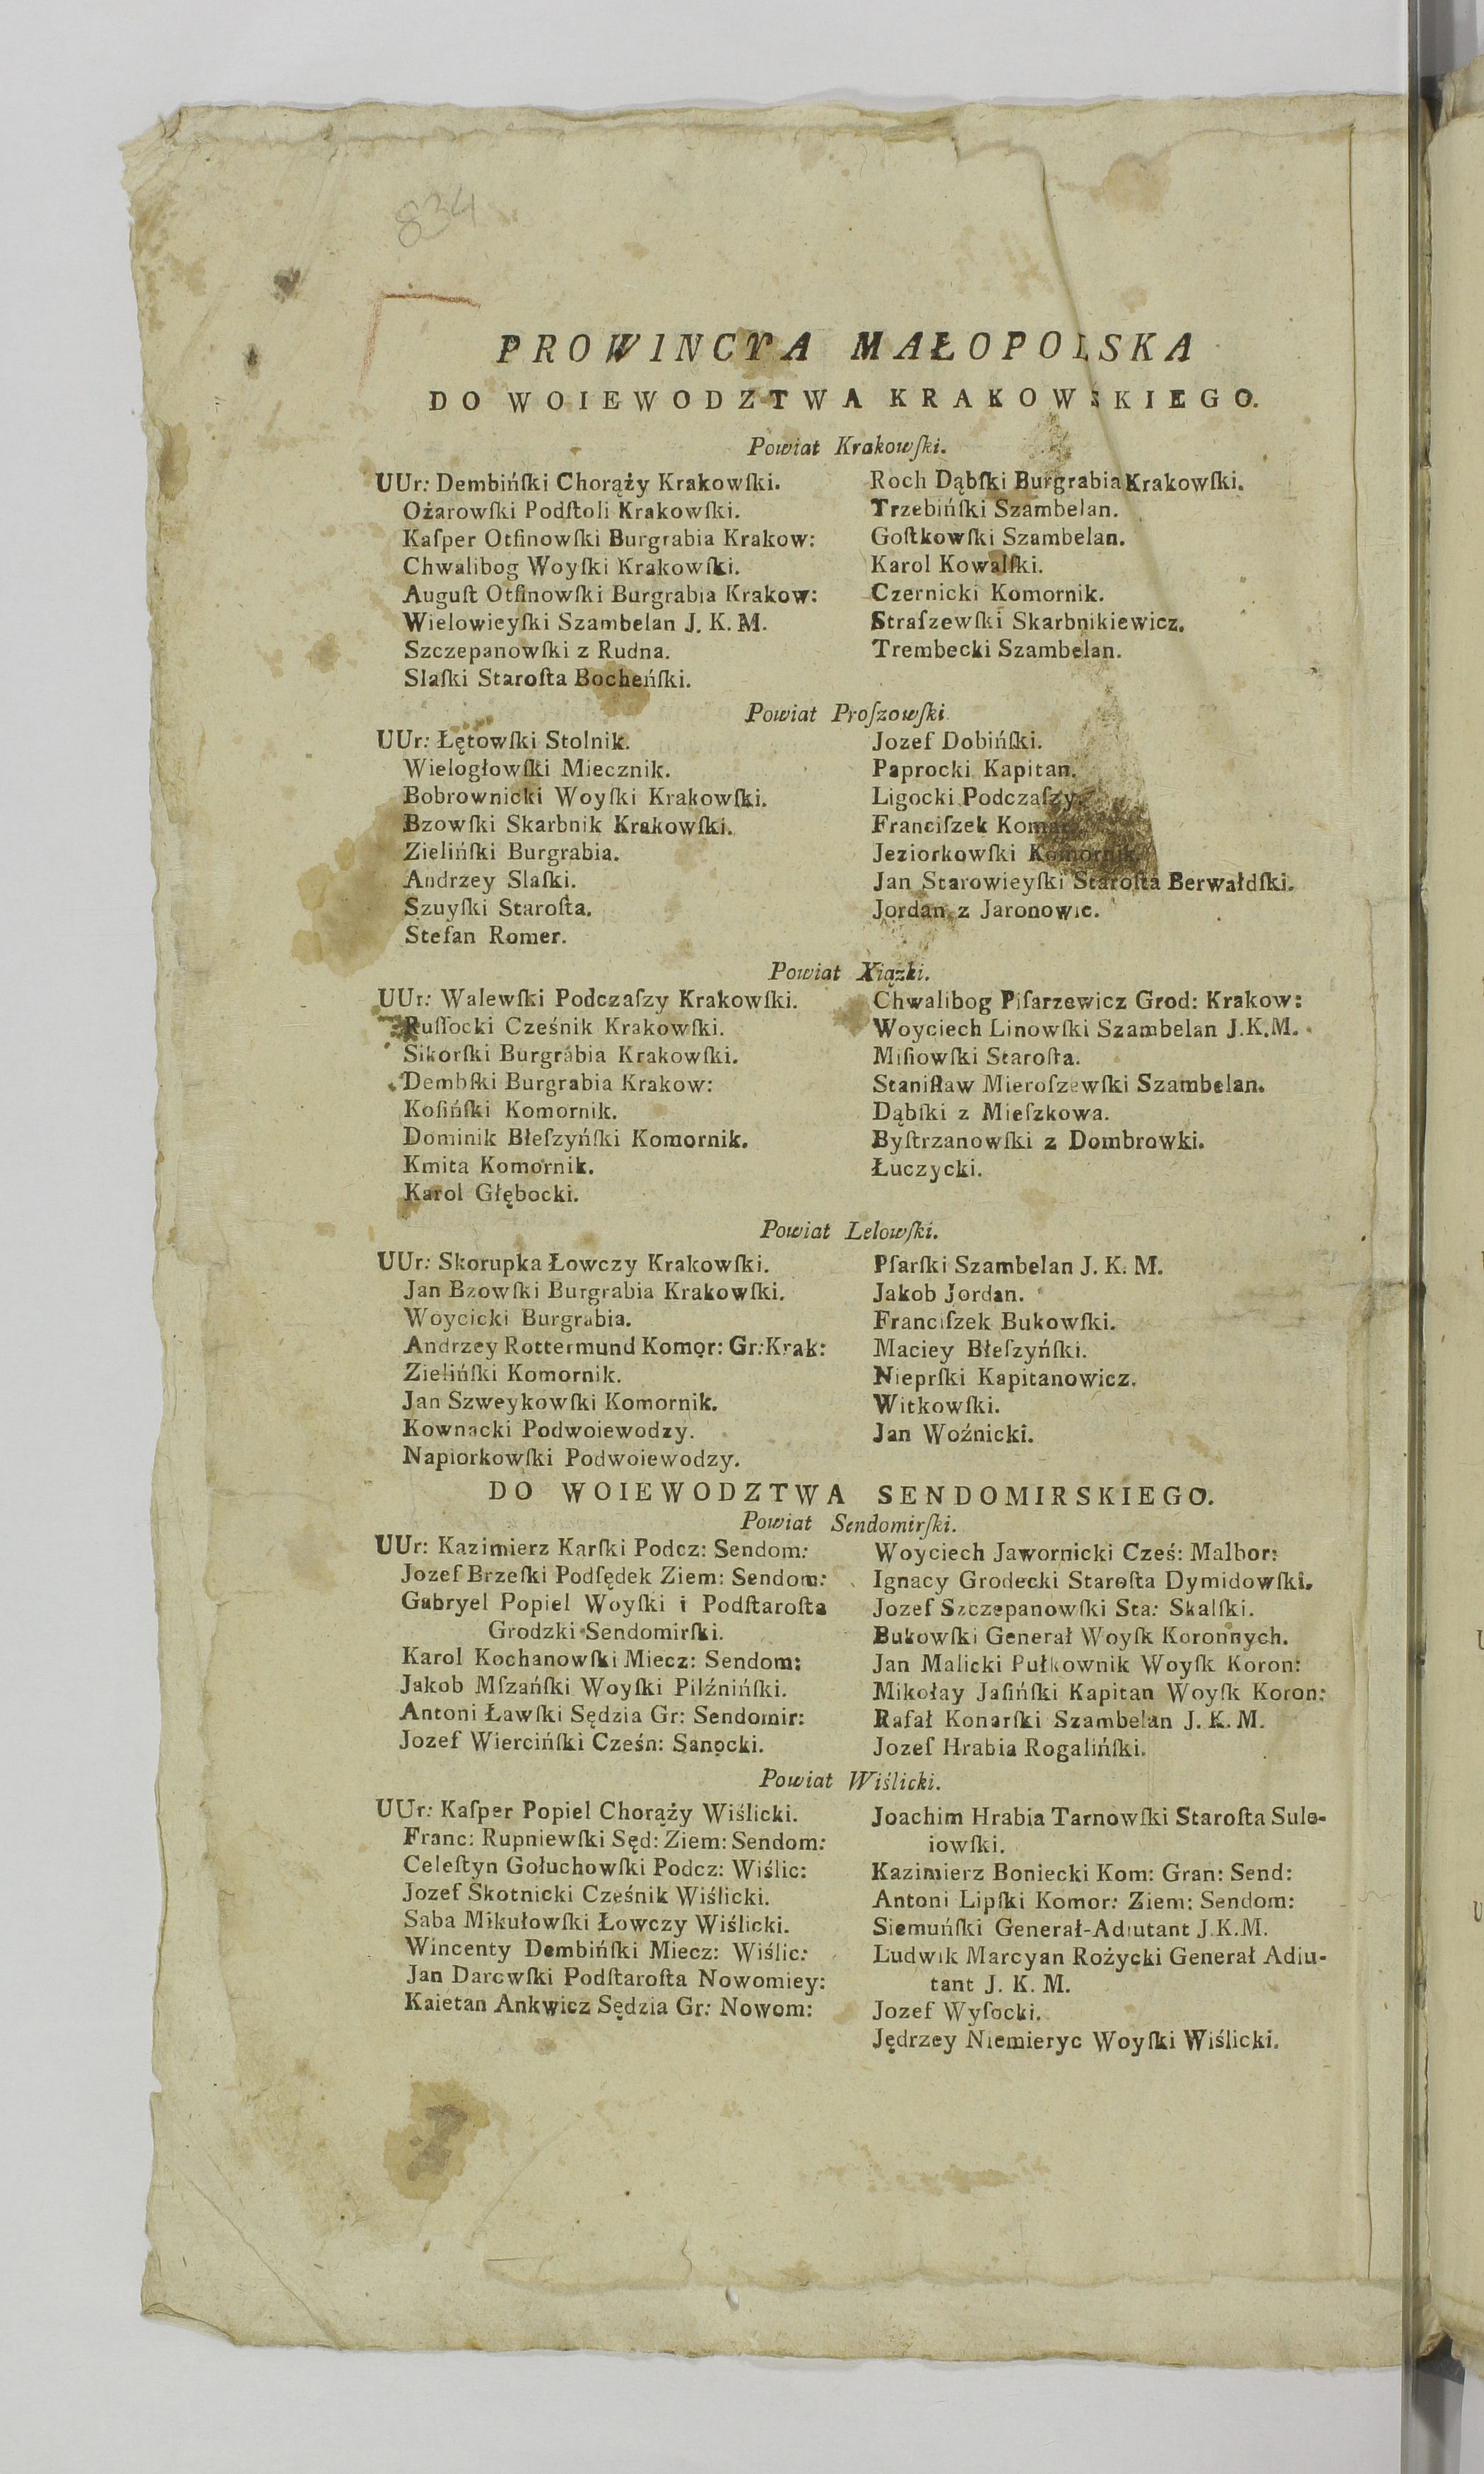 834
PROWINCYA MAŁOPOLSKA
DO WOIEWODZTWA KRAKOWSKIEGO.
Powiat Krakowſki.
UUr: Dembińſki Chorąży Krakowſki.
Ożarowſki Podſtoli Krakowſki.
Kaſper Otſinowſki Burgrabia Krakow:
Chwalibog Woyſki Krakowſki.
Auguſt Otſinowſki Burgrabia Krakow:
Wielowieyſki Szambelan J. K. M.
Szczepanowſki z Rudna.
Slaſki Staroſta Bocheńſki.
Roch Dąbſki Burgrabia Krakowſki.
Trzebińſki Szambelan.
Goſtkowſki Szambelan.
Karol Kowalſki.
Czernicki Komornik.
Straſzewſki Skarbnikiewicz.
Trembecki Szambelan.
Powiat Proſzowſki
UUr: Łętowſki Stolnik.
Wielogłowſki Miecznik.
Bobrownicki Woyſki Krakowſki.
Bzowſki Skarbnik Krakowſki.
Zielińſki Burgrabia.
Andrzey Slaſki.
Szuyſki Staroſta.
Stefan Romer.
Jozef Dobińſki.
Paprocki Kapitan.
Ligocki Podczaſzy.
Franciſzek
Jeziorkowſki Komornik.
Jan Starowieyſki Staroſta Berwałdſki.
Jordan z Jaronowic.
Powiat Xiązki.
UUr: Walewſki Podczaſzy Krakowſki.
Ruſſocki Cześnik Krakowſki.
Sikorſki Burgrabia Krakowſki.
Dembſki Burgrabia Krakow:
Koſińſki Komornik.
Dominik Błeſzyńſki Komornik.
Kmita Komornik.
Karol Głębocki.
Chwalibog Piſarzewicz Grod: Krakow:
Woyciech Linowſki Szambelan J.K.M.
Miſiowſki Staroſta.
Staniſław Mieroſzewſki Szambelan.
Dąbſki z Mieſzkowa.
Byſtrzanowſki z Dombrowki.
Łuczycki.
Powiat Lelowſki.
UUr: Skorupka Łowczy Krakowſki.
Jan Bzowſki Burgrabia Krakowſki.
Woycicki Burgrabia.
Andrzey Rottermund Komor: Gr: Krak:
Zielińſki Komornik.
Jan Szweykowſki Komornik.
Kownacki Podwoiewodzy.
Napiorkowſki Podwoiewodzy.
Pſarſki Szambelan J. K. M.
Jakob Jordan.
Franciſzek Bukowſki.
Maciey Błeſzyńſki.
Nieprſki Kapitanowicz.
Witkowſki.
Jan Woźnicki.
DO WOIEWODZTWA SENDOMIRSKIEGO.
Powiat Sendomirſki.
UUr: Kazimierz Karſki Podcz: Sendom:
Jozef Brzeſki Podſędek Ziem: Sendom:
Gabryel Popiel Woyſki i Podſtaroſta
Grodzki Sendomirſki.
Karol Kochanowſki Miecz: Sendom:
Jakob Mſzańſki Woyſki Pilźnińſki.
Antoni Ławſki Sędzia Gr: Sendomir:
Jozef Wiercińſki Cześn: Sanocki.
Woyciech Jawornicki Cześ: Malbor:
Ignacy Grodecki Staroſta Dymidowſki.
Jozef Szczepanowſki Sta: Skalſki.
Bukowſki Generał Woyſk Koronnych.
Jan Malicki Pułkownik Woyſk Koron:
Mikołay Jaſińſki Kapitan Woyſk Koron:
Rafał Konarſki Szambelan J. K. M.
Jozef Hrabia Rogalińſki.
Powiat Wiślicki.
UUr: Kaſper Popiel Chorąży Wiślicki.
Franc: Rupniewſki Sęd: Ziem: Sendom:
Celeſtyn Gołuchowſki Podcz: Wiślic:
Jozef Skotnicki Cześnik Wiślicki.
Saba Mikułowſki Łowczy Wiślicki.
Wincenty Dembińſki Miecz: Wiślic:
Jan Darowſki Podſtaroſta Nowomiey:
Kaietan Ankwicz Sędzia Gr: Nowom:
Joachim Hrabia Tarnowſki Staroſta Sule-
iowſki.
Kazimierz Boniecki Kom: Gran: Send:
Antoni Lipſki Komor: Ziem: Sendom:
Siemuńſki Generał-Adiutant J.K.M.
Ludwik Marcyan Rożycki Generał Adiu-
tant J. K. M.
Jozef Wyſocki.
Jędrzey Niemieryc Woyſki Wiślicki.